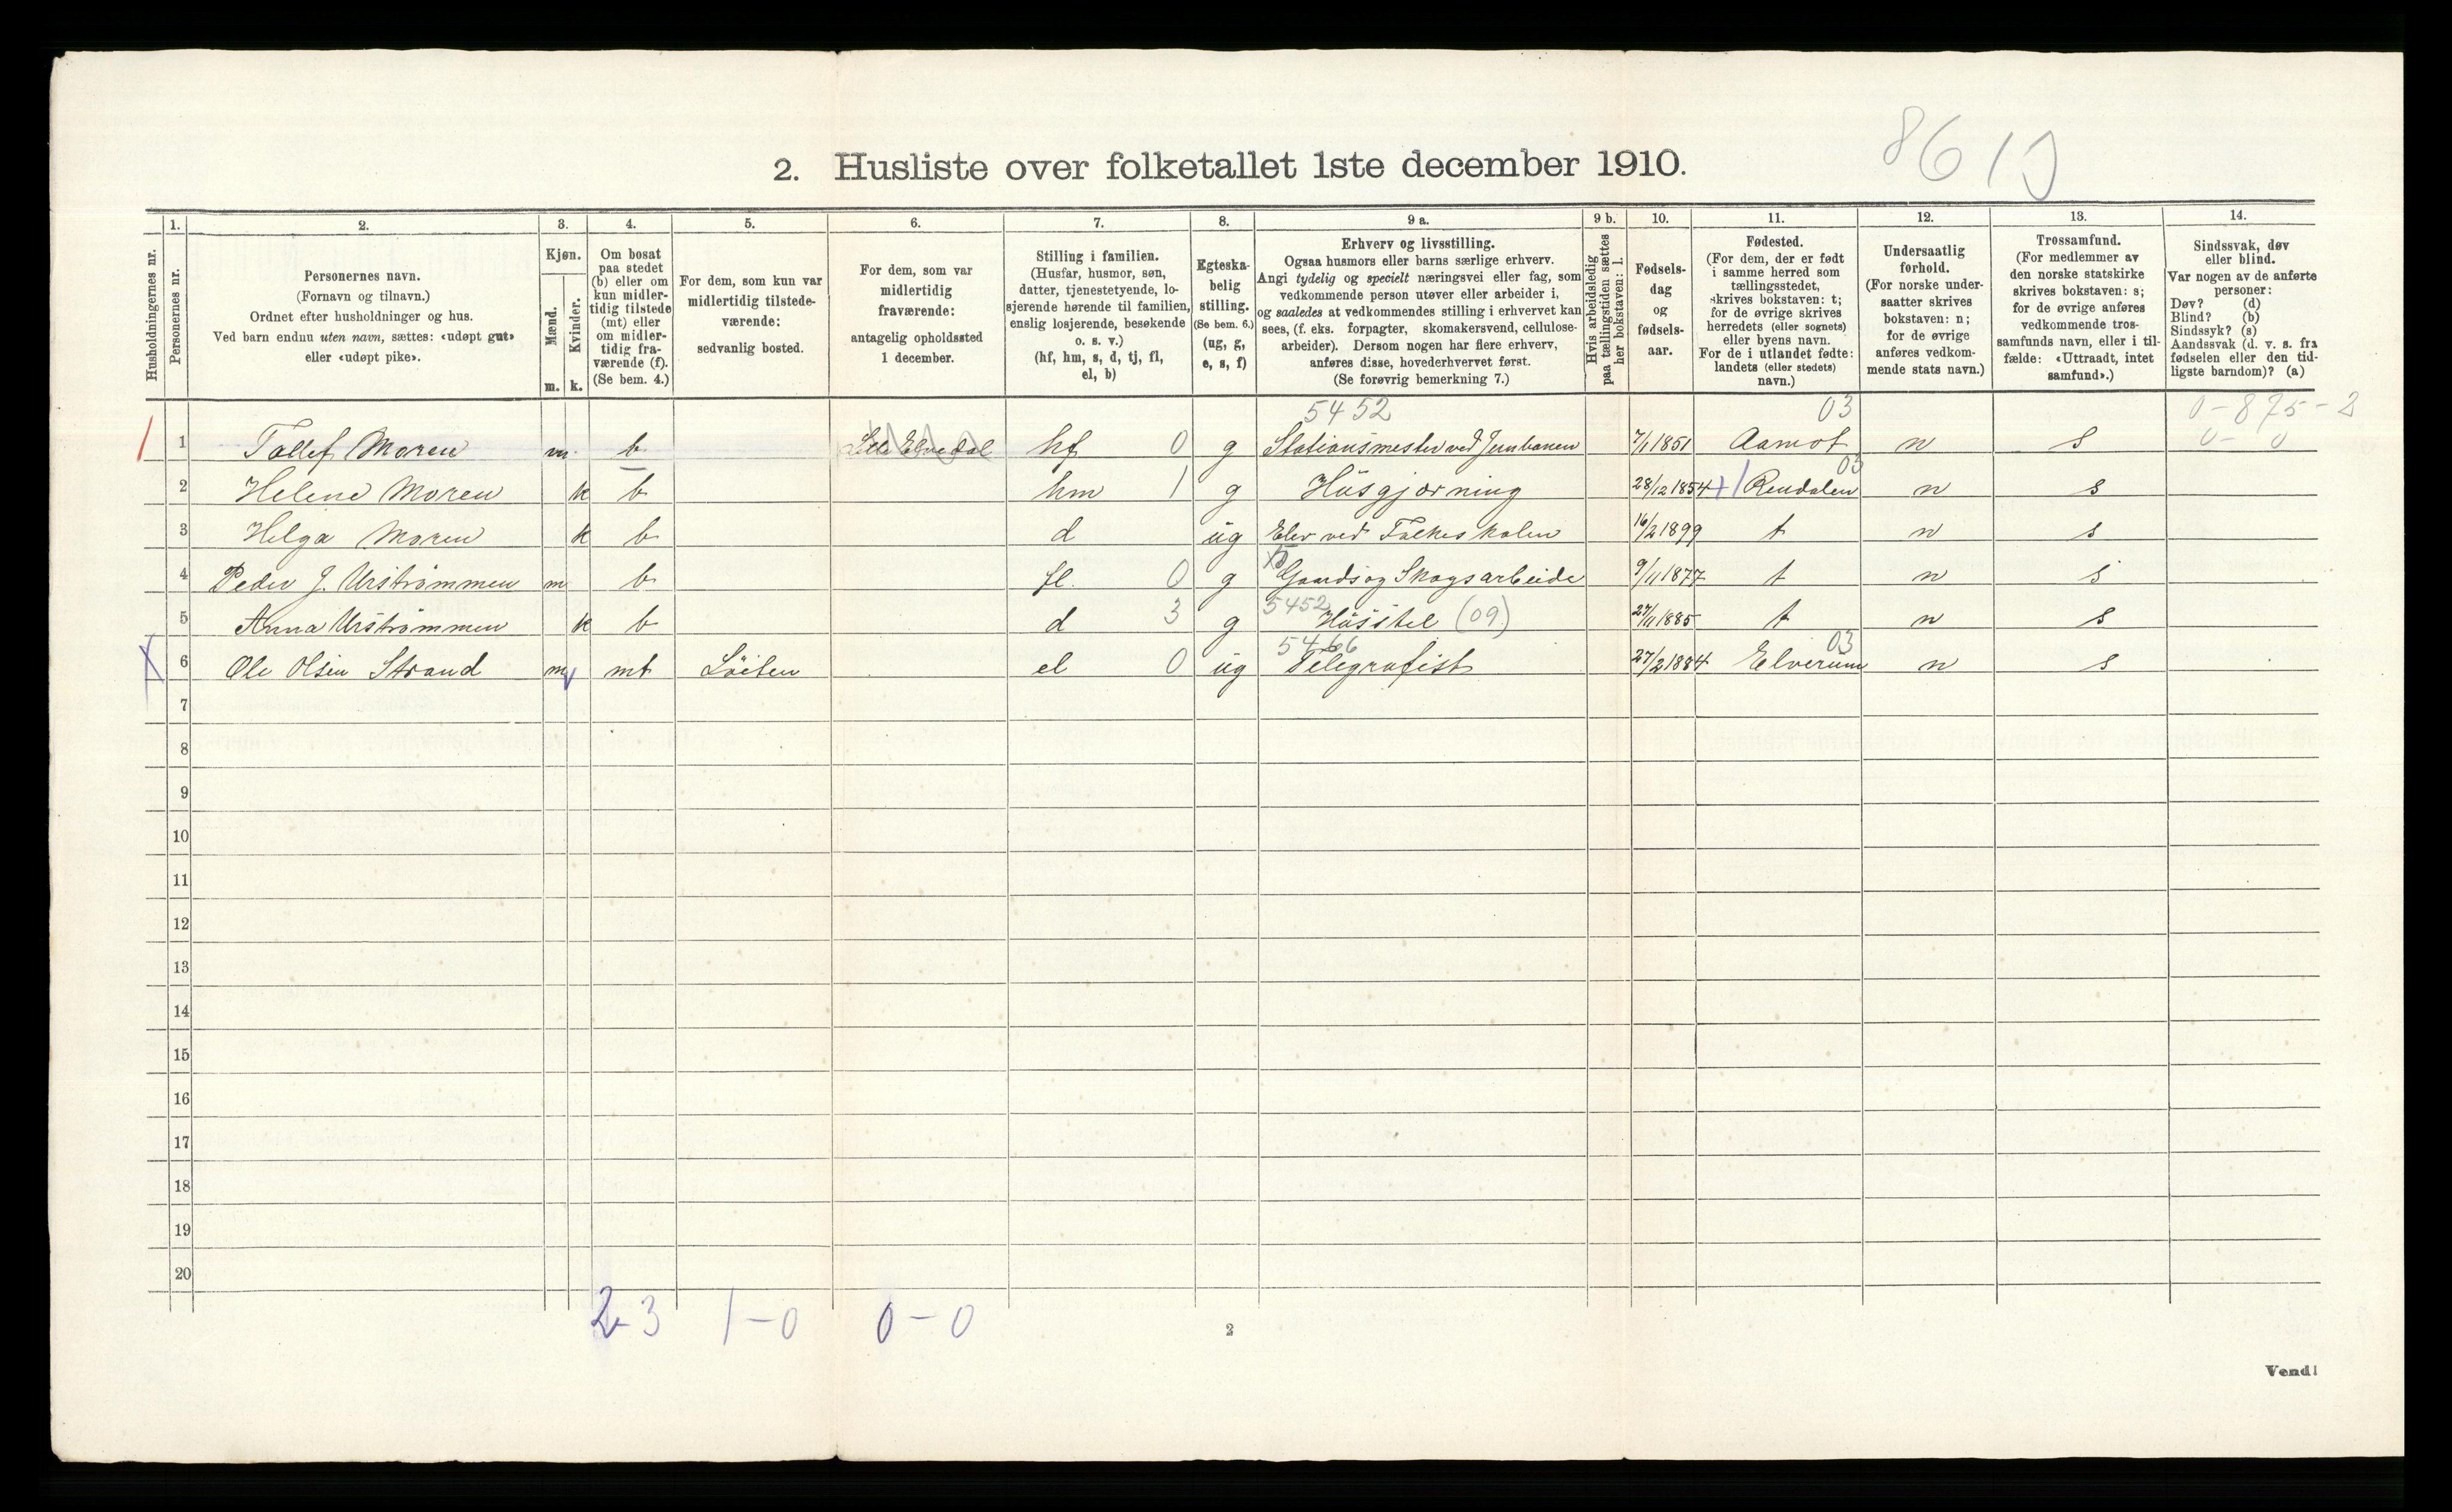 8619
2. Husliste over folketallet 1ste december 1910.
Husholdningernes nr.
1. Personernes nr.
2. Personernes navn.
(Fornavn og tilnavn.)
Ordnet efter husholdninger og hus.
Ved barn endnu uten navn, sættes: «udøpt gut»
eller «udøpt pike».
3. Kjøn.
Mænd. Kvinder.
m. k.
4. Om bosat
paa stedet
(b) eller om
kun midler-
tidig tilstede
(mt) eller
om midler-
tidig fra-
værende (f).
(Se bem. 4.)
5. For dem, som kun var
midlertidig tilstede-
værende:
sedvanlig bosted.
6. For dem, som var
midlertidig
fraværende:
antagelig opholdssted
1 december.
7. Stilling i familien.
(Husfar, husmor, søn,
datter, tjenestetyende, lo-
sjerende hørende til familien,
enslig losjerende, besøkende
o. s. v.)
(hf, hm, s, d, tj, fl,
el, b)
8. Egteska-
belig
stilling.
(Se bem. 6.)
(ug, g,
e, s, f)
9 a. Erhverv og livsstilling.
Ogsaa husmors eller barns særlige erhverv.
Angi tydelig og specielt næringsvei eller fag, som
vedkommende person utøver eller arbeider i,
og saaledes at vedkommendes stilling i erhvervet kan
sees, (f. eks. forpagter, skomakersvend, cellulose-
arbeider). Dersom nogen har flere erhverv,
anføres disse, hovederhvervet først.
(Se forøvrig bemerkning 7.)
9 b. Hvis arbeidsledig
paa tællingstiden sættes
her bokstaven: l.
10. Fødsels-
dag
og
fødsels-
aar.
11. Fødested.
(For dem, der er født
i samme herred som
tællingsstedet,
skrives bokstaven: t;
for de øvrige skrives
herredets (eller sognets)
eller byens navn.
For de i utlandet fødte:
landets (eller stedets)
navn.)
12. Undersaatlig
forhold.
(For norske under-
saatter skrives
bokstaven: n;
for de øvrige
anføres vedkom-
mende stats navn.)
13. Trossamfund.
(For medlemmer av
den norske statskirke
skrives bokstaven: s;
for de øvrige anføres
vedkommende tros-
samfunds navn, eller i til-
fælde: «Uttraadt, intet
samfund».)
14. Sindssvak, døv
eller blind.
Var nogen av de anførte
personer:
Døv? (d)
Blind? (b)
Sindssyk? (s)
Aandssvak (d. v. s. fra
fødselen eller den tid-
ligste barndom)? (a)
5452 03 0-875-2
1 Tollef Moren m. b Lille Elvedal hf 0 g Stationsmester ved Jernbanen 7/1 1851 Aamot n s 0-0
03
2 Helene Moren k b hm 1 g Húsgjørning 28/12 1854 Rendalen n s
3 Helga Moren k b d úg Elev ved Folkeskolen 16/2 1899 t n s
4 Peder J. Urströmmen m b fl. 0 g Gaards og Skogsarbeide 9/11 1877 t n s
5 Anna Urströmmen k b d 3 g 5452 Hússtel (09) 27/11 1885 t n s
5466 03
6 Ole Olsen Strand m mt Löiten el 0 úg Telegrafist 27/2 1884 Elverum n s
7
8
9
10
11
12
13
14
15
16
17
18
19
20
2-3 1-0 0-0
2
Vend!